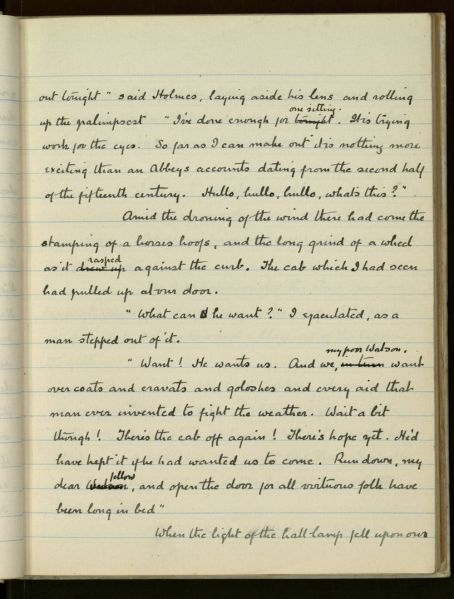 out tonight" said Holmes, laying aside his lens and rolling
one sitting.
up the palimpsest "I've done enough for tonight. It is trying
work for the eyes. So far as I can make out it is nothing more
exciting than an Abbey's accounts dating from the second half
of the fifteenth century. Hullo, hullo, hullo, what's this?"
Amid the droning of the wind there had come the
stamping of a horses hoofs, and the long grind of a wheel
rasped
as it drew up against the curb. The cab which I had seen
had pulled up at our door.
"What can he want?" I ejaculated, as a
man stepped out of it.
my poor Watson,
"Want! He wants us. And we, in turn want
overcoats and cravats and goloshes and every aid that
man ever invented to fight the weather. Wait a bit
though! There's the cab off again! There's hope yet. He'd
have kept it if he had wanted us to come. Run down, my
fellow
dear Watson, and open the door for all virtuous folk have
been long in bed"
When the light of the hall lamp fell upon our